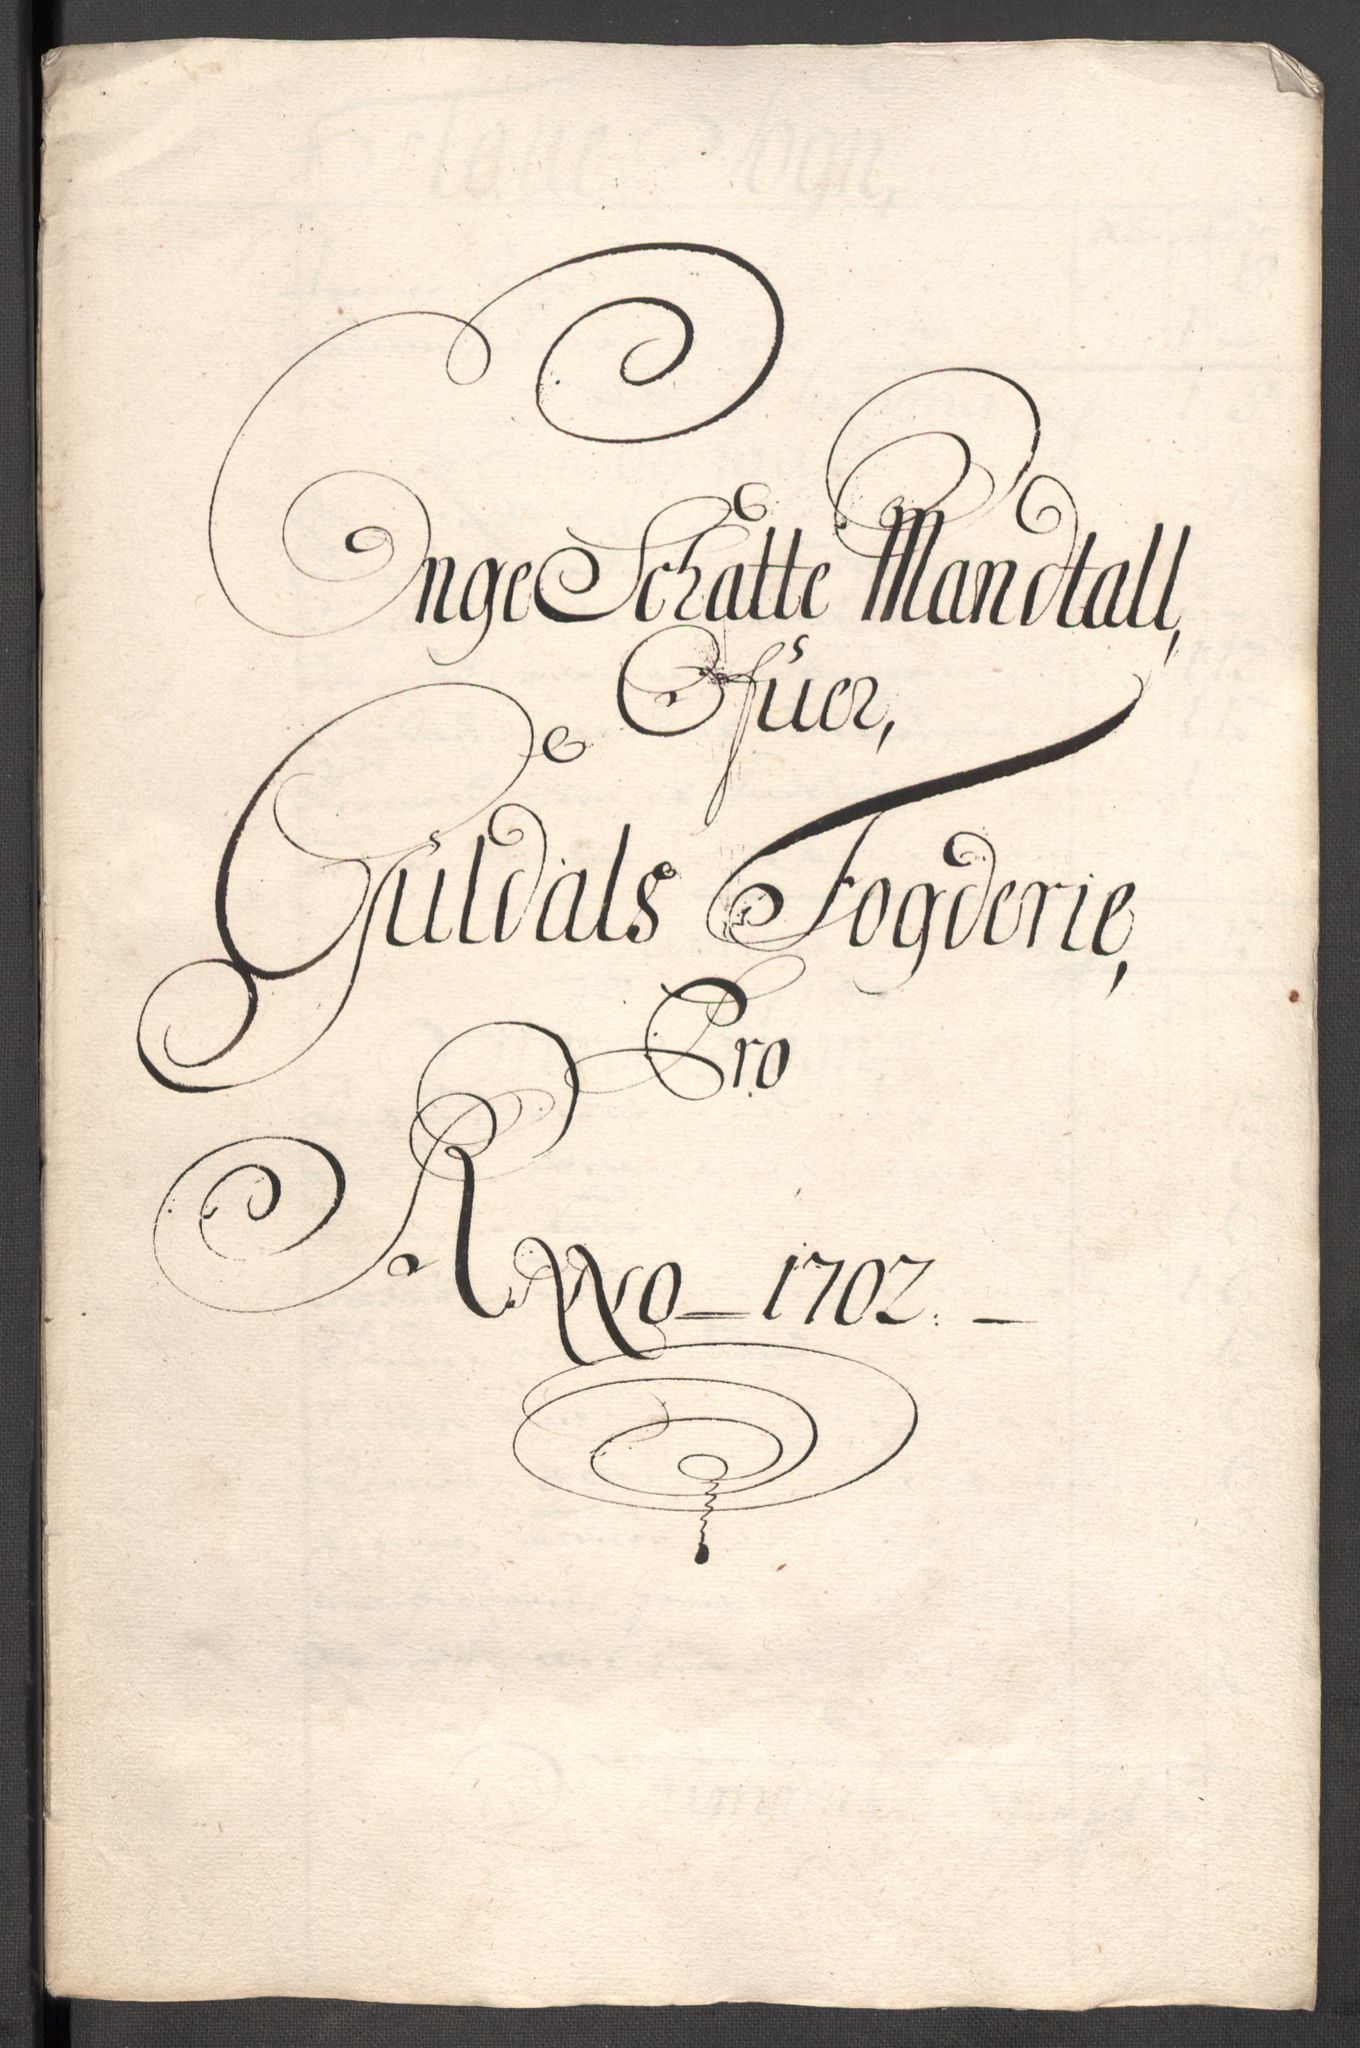 Enge Schatte Mandtall,
Ofuer,
Guldals Fogderie,
Pro
Anno 1702.